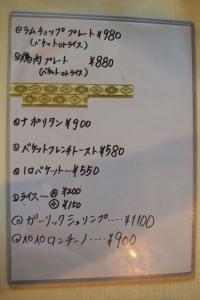 @ラムチョップ プレート ¥980
(バケットorライス)
@鶏肉プレート ¥880
(バケットorライス)
@ナポリタン ¥900
@バケットフレンチトースト ¥580
@1ロバケット… ¥550
@ライス… 大 ¥200
中 ¥150
@ガーリックシュリンプ…‥ ¥1100
@ペペロンチーノ…. ¥900